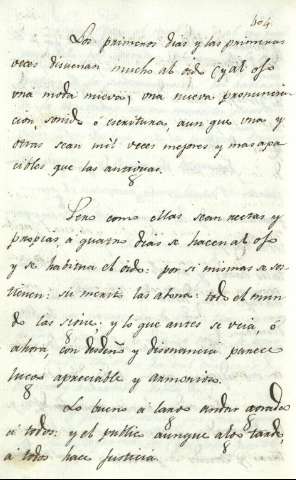 404
Los primeros dias y las primeras
veces disuenan mucho al oido (y al ojo
una moda nueva; una nueva pronuncia
cion, sonido ó escritura, aun que unas y
otras sean mil veces mejores y mas apa
cibles que las antiguas.
Pero como ellas sean rectas y
propias á quatro dias se hacen al ojo
y se habitua el oido: por si mismas se sos
tienen: su merito las abona: todo el mun
do las sigue; y lo que antes se veia, ó
ahora, con desdeño y disonancia parece
luego apreciable y armonico.
Lo bueno á largo andar agrada
á todos: y el publico aunque algo tarde,
á todos hace justicia.